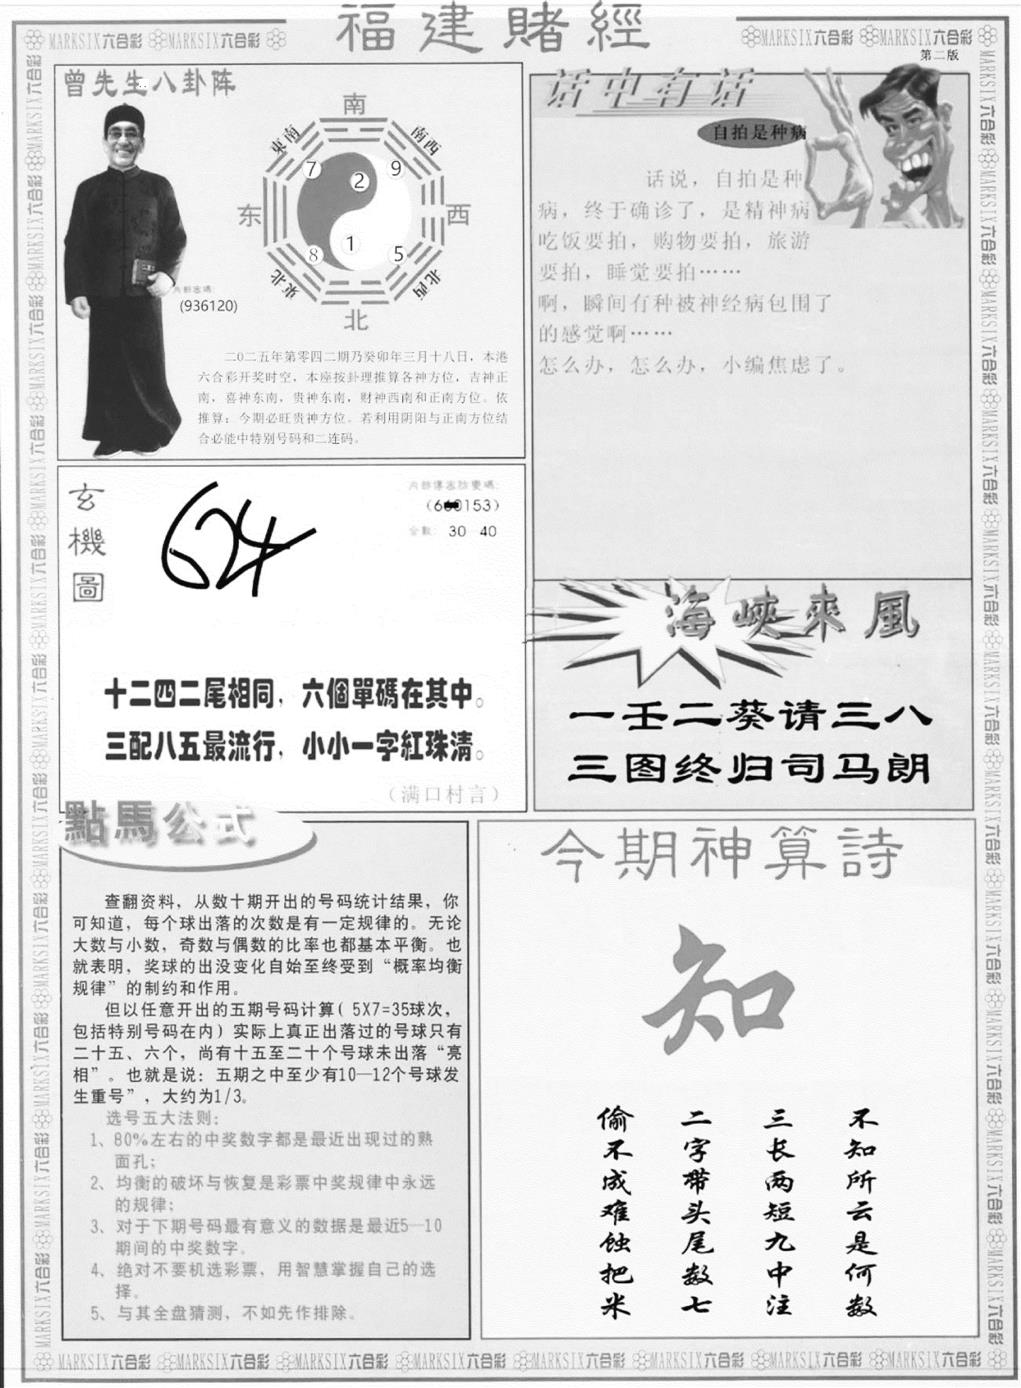 福建賭經
MARKSIX六合彩 MARKSIX六合彩
MARKSIX六合彩 MARKSIX六合彩
第二版
曾先生八卦阵
南
東南
南西
7
9
2
东
西
1
8
5
東北
北西
北
内部密碼:
(936120)
二0二五年第零四二期乃癸卯年三月十八日，本港
六合彩开奖时空，本座按卦理推算各神方位，吉神正
南，喜神东南，贵神东南，财神西南和正南方位。依
推算：今期必旺贵神方位。若利用阴阳与正南方位结
合必能中特别号码和二连码。
话中有话
自拍是种病
话说，自拍是种
病，终于确诊了，是精神病
吃饭要拍，购物要拍，旅游
要拍，睡觉要拍……
啊，瞬间有种被神经病包围了
的感觉啊……
怎么办，怎么办，小编焦虑了。
玄機圖
(660153)
30 40
624
十二四二尾相同，六個單碼在其中。
三配八五最流行，小小一字紅珠清。
（满口村言）
海峽來風
一壬二葵请三八
三图终归司马朗
點馬公式
查翻资料，从数十期开出的号码统计结果，你
可知道，每个球出落的次数是有一定规律的。无论
大数与小数，奇数与偶数的比率也都基本平衡。也
就表明，奖球的出没变化自始至终受到“概率均衡
规律”的制约和作用。
但以任意开出的五期号码计算( 5X7=35球次，
包括特别号码在内）实际上真正出落过的号球只有
二十五、六个，尚有十五至二十个号球未出落“亮
相”。也就是说：五期之中至少有10—12个号球发
生重号”，大约为1/3。
选号五大法则：
1、80%左右的中奖数字都是最近出现过的熟
面孔；
2、均衡的破坏与恢复是彩票中奖规律中永远
的规律；
3、对于下期号码最有意义的数据是最近5—10
期间的中奖数字。
4、绝对不要机选彩票，用智慧掌握自己的选
择。
5、与其全盘猜测，不如先作排除。
今期神算詩
知
不知所云是何数
三长两短九中注
二字带头尾数七
偷不成难蚀把米
MARKSIX六合彩 MARKSIX六合彩 MARKSIX六合彩 MARKSIX六合彩 MARKSIX六合彩 MARKSIX六合彩 MARKSIX六合彩 MARKSIX六合彩